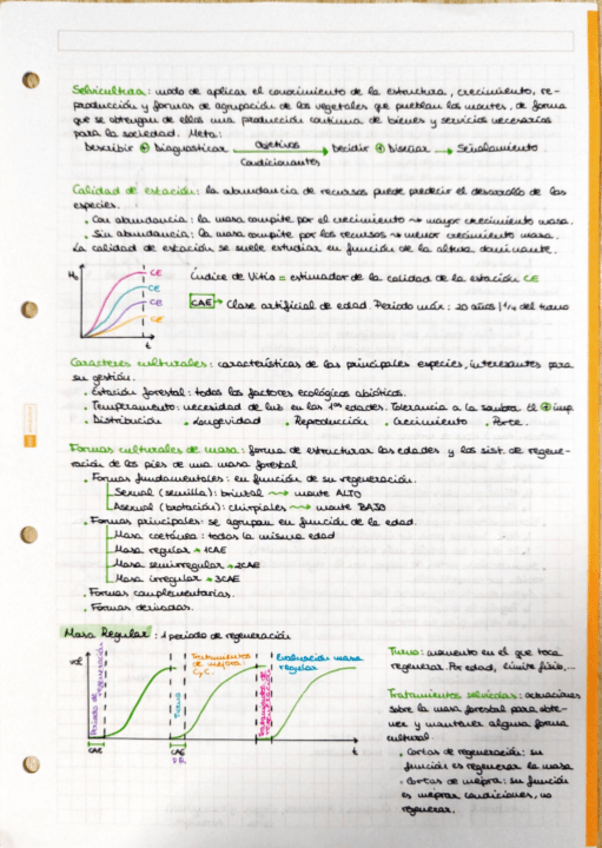 Selvicultura: modo de aplicar el conocimiento de la estructura, crecimiento, re-
producción y formas de agrupación de los vegetales que pueblan los montes, de forma
que se obtengan de ellos una producción continua de bienes y servicios necesarios
para la sociedad. Meta:
Describir + Diagnosticar Objetivos Condicionantes → Decidir + Diseñar → Señalamiento
Calidad de estación: la abundancia de recursos puede predecir el desarrollo de las
especies.
. Con abundancia: la masa compite por el crecimiento → mayor crecimiento masa.
. Sin abundancia: la masa compite por los recursos → menor crecimiento masa.
La calidad de estación se suele estudiar en función de la altura dominante.
H₀
CE
CE
CE
CE
t
Índice de Sitio = estimador de la calidad de la estación CE
CAE → Clase artificial de edad. Periodo máx: 20 años | 1/4 del turno
Caracteres culturales: características de las principales especies, interesantes para
su gestión.
. Estación forestal: todos los factores ecológicos abióticos.
. Temperamento: necesidad de luz en las 1as edades. Tolerancia a la sombra. El + imp
. Distribución . Longevidad . Reproducción . Crecimiento . Porte.
Formas culturales de masa: forma de estructurar las edades y los sist. de regene-
ración de los pies de una masa forestal
. Formas fundamentales: en función de su regeneración.
Sexual (semilla): brinzal → monte ALTO
Asexual (brotación): chirpiales → monte BAJO
. Formas principales: se agrupan en función de la edad.
Masa coetánea: todos la misma edad
Masa regular → 1CAE
Masa semirregular → 2CAE
Masa irregular → 3CAE
. Formas complementarias.
. Formas derivadas.
Masa Regular: 1 periodo de regeneración
Vol
Periodo de regeneración
Tratamientos de mejora: C y C.
Turno
Tratamientos de regeneración
Evaluación masa regular
CAE
CAE
t
Turno: momento en el que toca
regenerar. Por edad, límite físio,...
Tratamientos selvícolas: actuaciones
sobre la masa forestal para obte-
ner y mantener alguna forma
cultural.
. Cortas de regeneración: su
función es regenerar la masa
. Cortas de mejora: su función
es mejorar condiciones, no
regenerar.